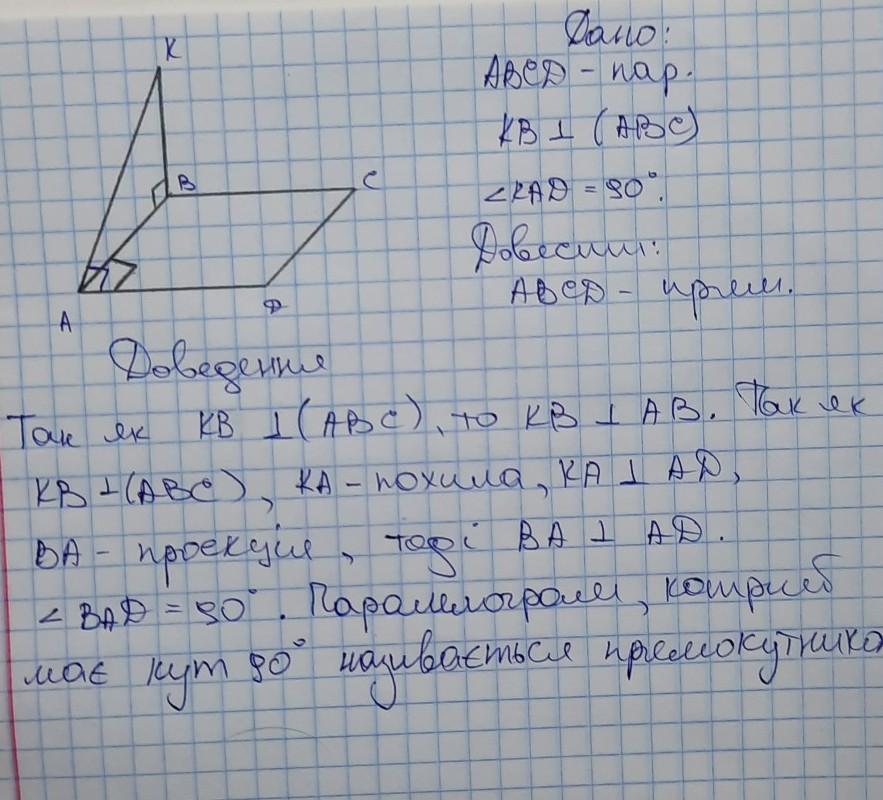 K
B
C
A
D
Дано:
ABCD - пар.
KB ⊥ (ABC)
∠KAD = 90°.
Довести:
ABCD - прям.
Доведення
Так як KB ⊥ (ABC), то KB ⊥ AB. Так як
KB ⊥ (ABC), KA - похила, KA ⊥ AD,
BA - проекція, тоді BA ⊥ AD.
∠BAD = 90°. Паралелограм, котрий
має кут 90° називається прямокутнико